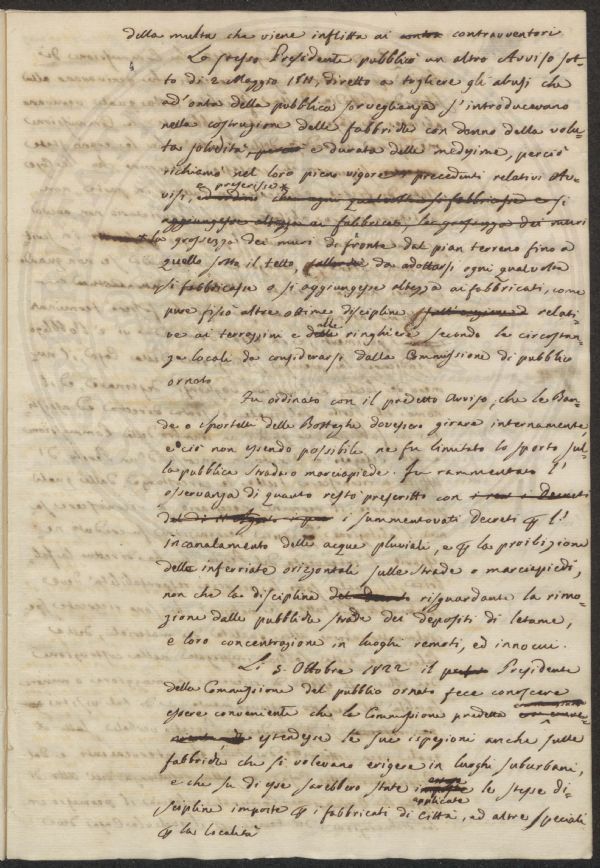 della multa che viene inflitta ai contra contravventori
Lo stesso Presidente pubblicò un altro Avviso sot=
to di 2 Maggio 1811, diretto a togliere gli abusi che
ad'onta della pubblica sorveglianza s'introducevano
nella costruzione delle fabbriche con danno della volu=
ta solidità, e durata delle medesime, perciò
richiamò nel loro pieno vigore i precedenti relativi Av=
visi, ed ordinò che ogni qualvolta si fabbricasse e si
e prescrisse
aggiungesse altezza ai fabbricati, la grossezza dei muri
la grossezza dei muri di fronte dal pian terreno fino a
quello sotto il tetto, da adottarsi ogni qualvolta
si fabbricasse o si aggiungesse altezza ai fabbricati, come
pure fissò altre ottime discipline relati=
ve ai terrazzini e alle ringhiere secondo la circostan=
za locali da considerarsi dalla Commissione di pubblico
ornato
Fu ordinato con il predetto Avviso, che le Ban=
de o sportelli delle Botteghe dovessero girare internamente,
e ciò non essendo possibile ne fu limitato lo sporto sul=
la pubblica strada o marciapiede. Fu rammentato l'
osservanza di quanto restò prescritto con Decreti
i summentovati Decreti p l'
incanalamento delle acque pluviali, e p la proibizione
delle inferriate orizzontali sulle strade o marciapiedi,
non che la disciplina risguardante la rimo=
zione dalle pubbliche strade dei depositi di letame,
e loro concentrazione in luoghi remoti, ed innocui.
Li 5 Ottobre 1822 il Presidente
della Commissione del pubblico ornato fece conoscere
essere conveniente che la Commissione predetta
estendesse le sue ispezioni anche sulle
fabbriche che si volevano erigere in luoghi suburbani,
e che su di esse sarebbero state le stesse di=
applicate
scipline imposte p i fabbricati di Città, ed altre speciali
p la località